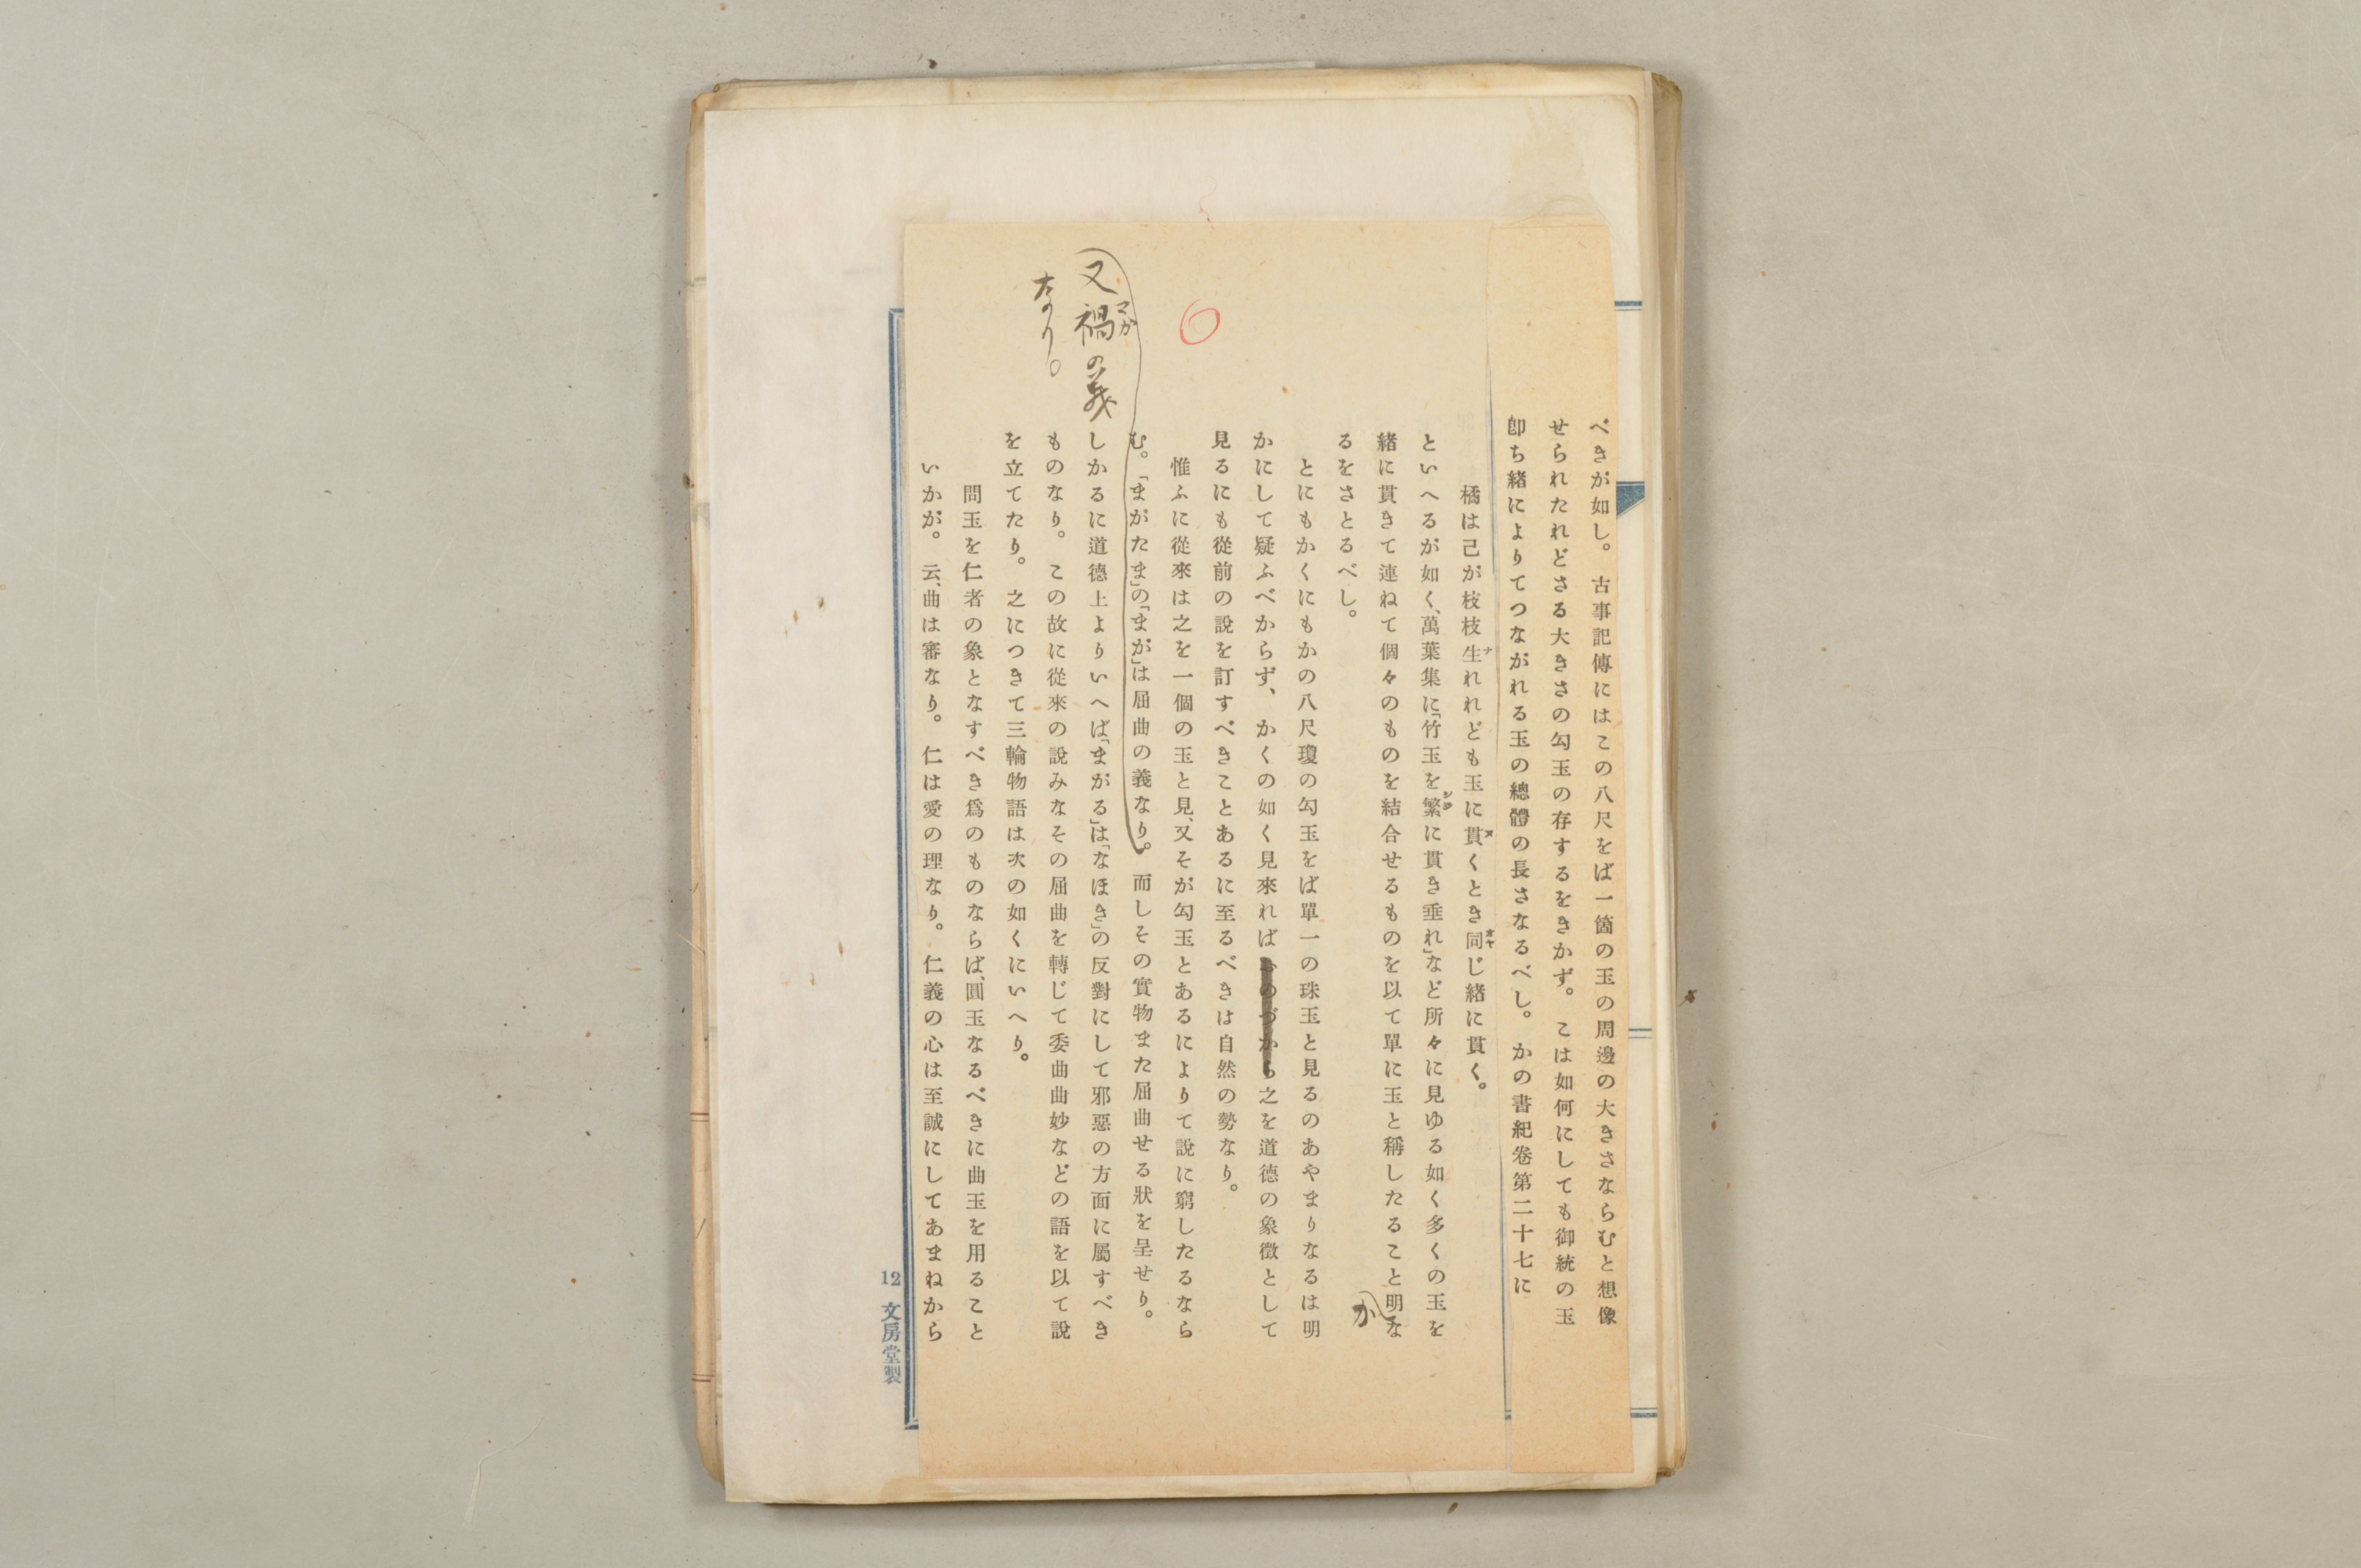 べきが如し。古事記傳にはこの八尺をば一箇の玉の周邊の大きさならむと想像
せられたれどさる大きさの勾玉の存するをきかず。こは如何にしても御統の玉
卽ち緒によりてつながれる玉の總體の長さなるべし。かの書紀卷第二十七に
橘は己が枝枝生れれども玉に貫くとき同じ緒に貫く。
ナ
ヌ
オヤ
といへるが如く、萬葉集に「竹玉を繁に貫き垂れ」など所々に見ゆる如く多くの玉を
シヾ
緒に貫きて連ねて個々のものを結合せるものを以て單に玉と稱したること明な
か
るをさとるべし。
とにもかくにもかの八尺瓊の勾玉をば單一の珠玉と見るのあやまりなるは明
かにして疑ふべからず、かくの如く見來ればおのづから之を道德の象徵として
見るにも從前の說を訂すべきことあるに至るべきは自然の勢なり。
惟ふに從來は之を一個の玉と見、又そが勾玉とあるによりて說に窮したるなら
む。「まがたま」の「まが」は屈曲の義なり。而しその實物また屈曲せる狀を呈せり。
又禍の義
マガ
なり。
しかるに道德上よりいへば「まがる」は「なほき」の反對にして邪惡の方面に屬すべき
ものなり。この故に從來の說みなその屈曲を轉じて委曲曲妙などの語を以て說
を立てたり。之につきて三輪物語は次の如くにいへり。
問玉を仁者の象となすべき爲のものならば、圓玉なるべきに曲玉を用ること
いかが。云、曲は審なり。仁は愛の理なり。仁義の心は至誠にしてあまねから
12 文房堂製